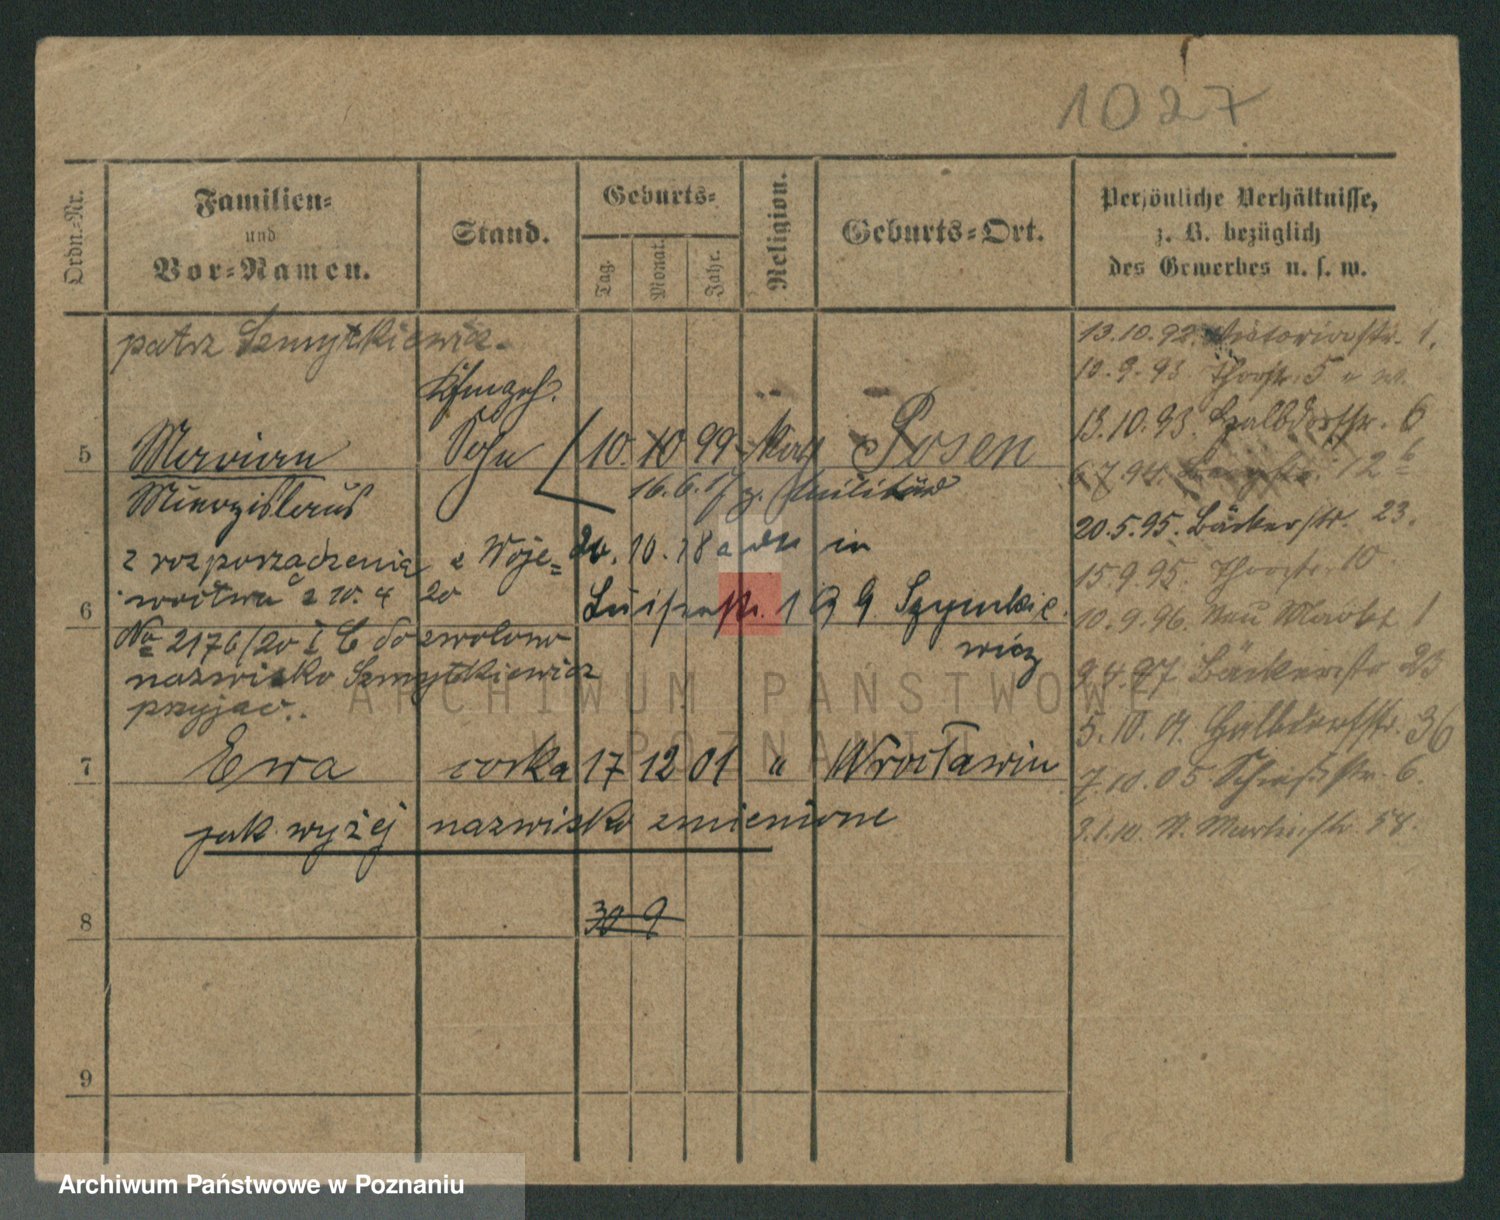 1027
Ordn.-Nr.
Familien-
und
Vor-Namen.
Stand.
Geburts-
Tag.
Monat.
Jahr.
Religion.
Geburts-Ort.
Persönliche Verhältnisse,
z. B. bezüglich
des Gewerbes u. s. w.
patrz Szmytkiewicz.
5 Marian Sohn 10. 10 99 kath Posen
16.6.17 z. Militär
z rozporządzenia Woje=
wództwa z 10. 4 20
20. 10. 18 a in
6 Luisenstr. 19 Szymkie
wicz
No 2176/20 I C dozwolono
nazwisko Szmytkiewicz
przyjąć.
7 Ewa córka 17 12 01 " Wrocławiu
jak wyżej nazwisko zmienione
8 30 9
9
13.10.92. Victoriastr. 1.
10.9.93 Thorstr. 5
13.10.93. Halbdorfstr. 6
6.7.94. 12
20.5.95. Bäckerstr. 23.
15.9.95. Thorstr. 10.
10.9.96. Neu Markt 1
9.4.97 Bäckerstr 23
5.10.01. Halbdorfstr. 36
7.10.05 Schießstr. 6.
3.1.10. St. Martinstr. 58.
ARCHIWUM PAŃSTWOWE
W POZNANIU
Archiwum Państwowe w Poznaniu